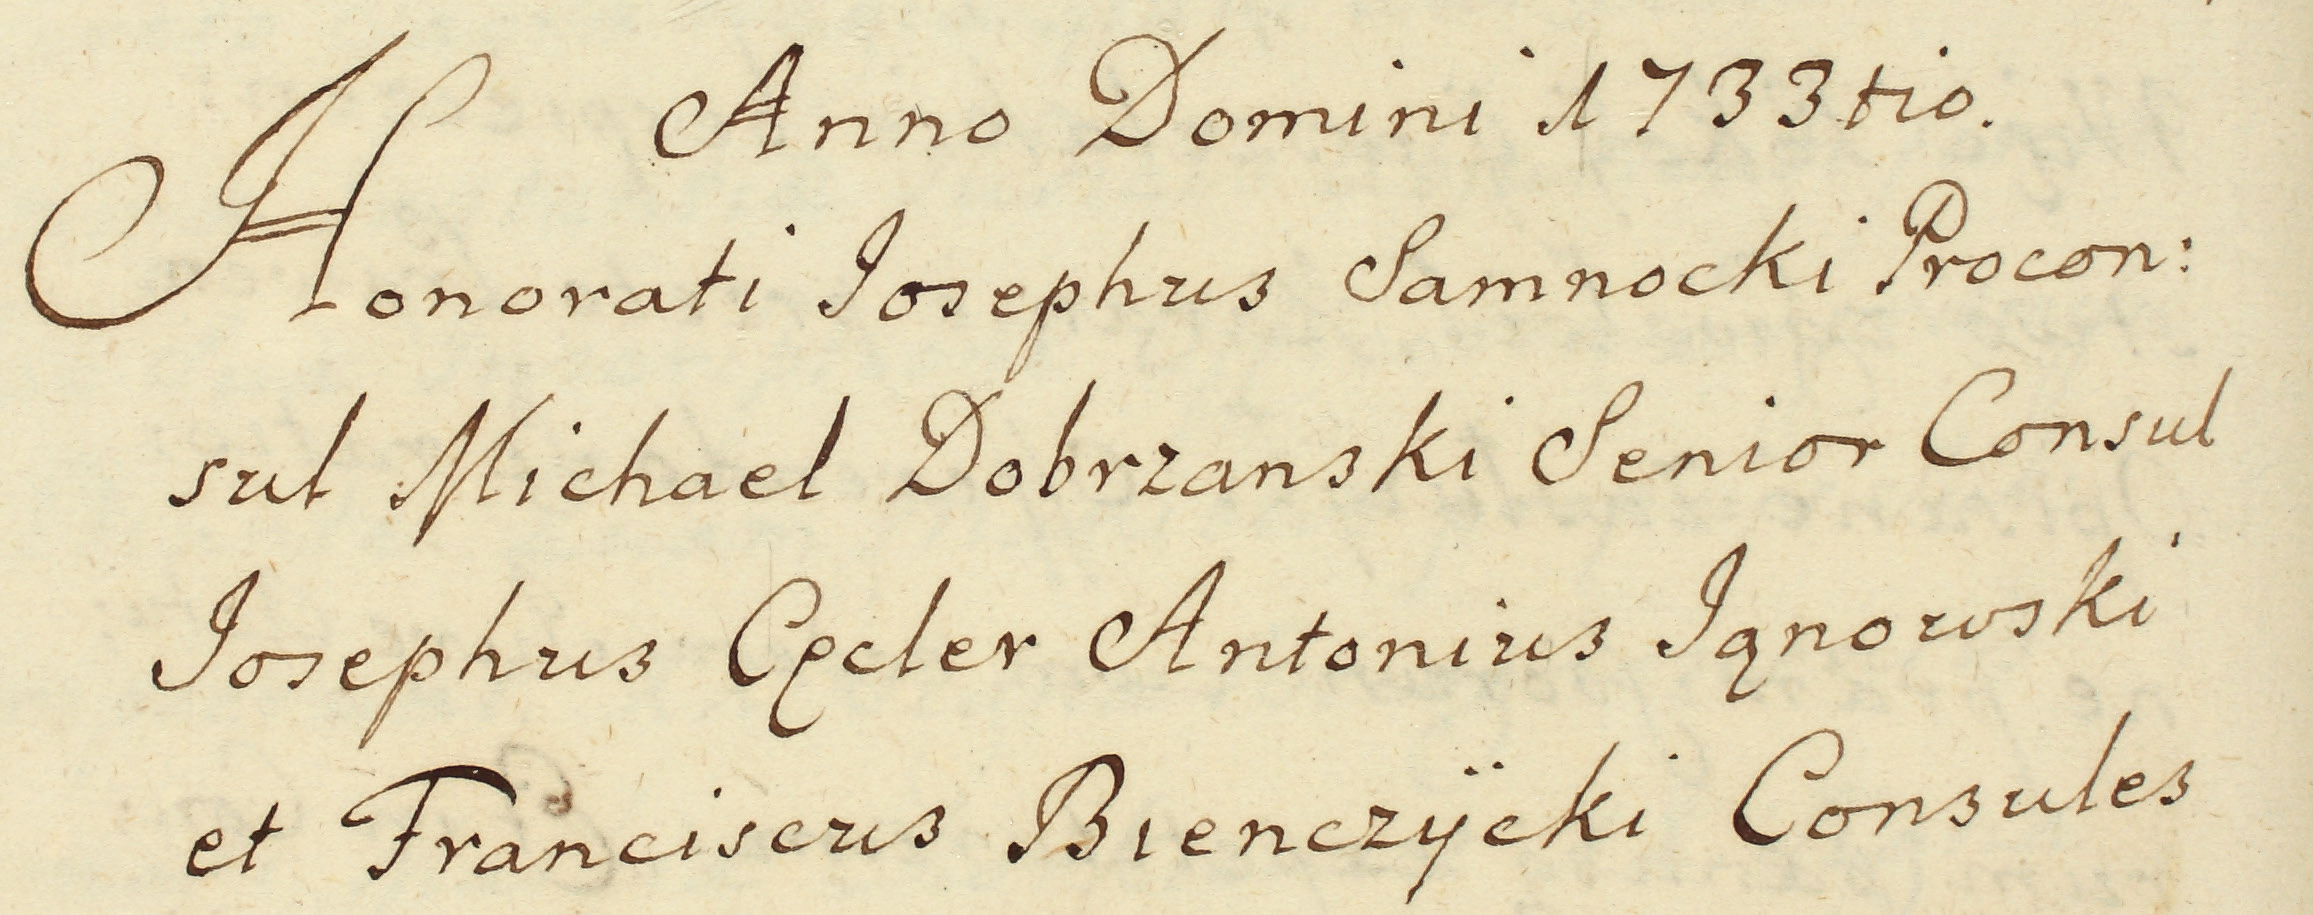 Anno Domini 1733tio.
Honorati Iosephus Samnocki Procon:
sul Michael Dobrzanski Senior Consul
Iosephus Cęcler Antonius Iqnowski
et Franciscus Bienczÿcki Consules